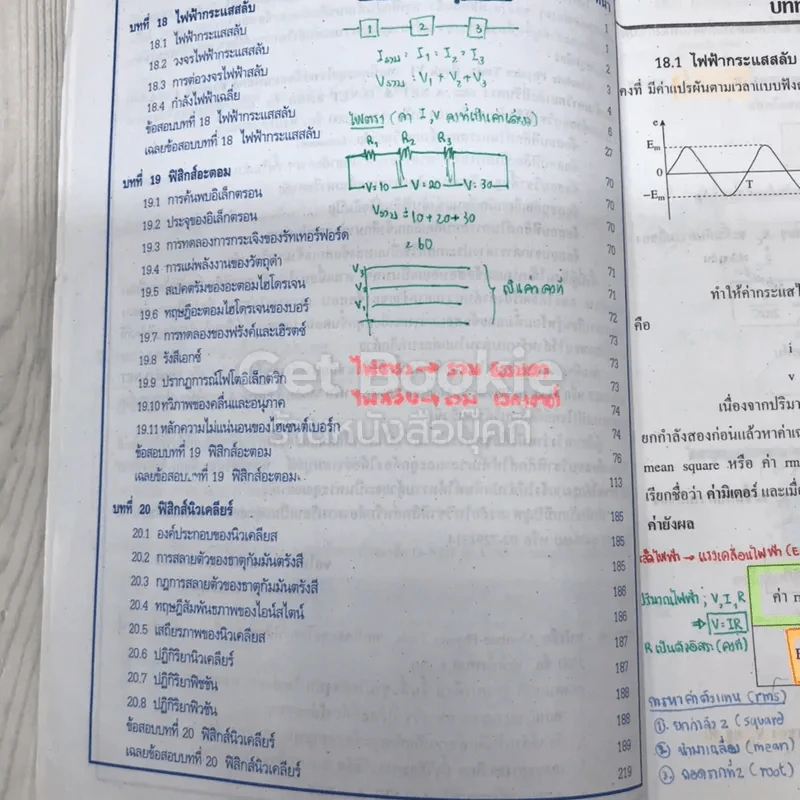 บทที่ 18 ไฟฟ้ากระแสสลับ
18.1 ไฟฟ้ากระแสสลับ 1
18.2 วงจรไฟฟ้ากระแสสลับ 2
18.3 การต่อวงจรไฟฟ้าสลับ 3
18.4 กำลังไฟฟ้าเฉลี่ย 4
ข้อสอบบทที่ 18 ไฟฟ้ากระแสสลับ 6
เฉลยข้อสอบบทที่ 18 ไฟฟ้ากระแสสลับ 27
บทที่ 19 ฟิสิกส์อะตอม
19.1 การค้นพบอิเล็กตรอน 70
19.2 ประจุของอิเล็กตรอน 70
19.3 การทดลองการกระเจิงของรัทเทอร์ฟอร์ด 70
19.4 การแผ่พลังงานของวัตถุดำ 71
19.5 สเปคตรัมของอะตอมไฮโดรเจน 71
19.6 ทฤษฎีอะตอมไฮโดรเจนของบอร์ 72
19.7 การทดลองของฟรังค์และเฮิรตซ์ 73
19.8 รังสีเอกซ์ 73
19.9 ปรากฏการณ์โฟโตอิเล็กตริก 73
19.10 ทวิภาพของคลื่นและอนุภาค 74
19.11 หลักความไม่แน่นอนของไฮเซนต์เบอร์ก 74
ข้อสอบบทที่ 19 ฟิสิกส์อะตอม 76
เฉลยข้อสอบบทที่ 19 ฟิสิกส์อะตอม 113
บทที่ 20 ฟิสิกส์นิวเคลียร์ 185
20.1 องค์ประกอบของนิวเคลียส 185
20.2 การสลายตัวของธาตุกัมมันตรังสี 185
20.3 กฎการสลายตัวของธาตุกัมมันตรังสี 186
20.4 ทฤษฎีสัมพันธภาพของไอน์สไตน์
20.5 เสถียรภาพของนิวเคลียส 187
20.6 ปฏิกิริยานิวเคลียร์ 187
20.7 ปฏิกิริยาฟิชชัน 188
20.8 ปฏิกิริยาฟิวชัน 188
ข้อสอบบทที่ 20 ฟิสิกส์นิวเคลียร์ 189
เฉลยข้อสอบบทที่ 20 ฟิสิกส์นิวเคลียร์ 219
1 2 3
Iรวม = I₁ = I₂ = I₃
Vรวม = V₁ + V₂ + V₃
ไฟตรง (ค่า I, V คงที่เป็นค่าเดียว)
R₁ R₂ R₃
V=10 V=20 V=30
Vรวม = 10+20+30
= 60
เป็นค่าคงที่
Get Bookie
ร้านหนังสือบุ๊คกี้
บทที่
18.1 ไฟฟ้ากระแสสลับ
คงที่ มีค่าแปรผันตามเวลาแบบฟังก์
e
Em
0
T
−Em
ทำให้ค่ากระแสไ
คือ
i
v
เนื่องจากปริมา
ยกกำลังสองก่อนแล้วหาค่าเฉ
mean square หรือ ค่า rm
เรียกชื่อว่า ค่ามิเตอร์ และเมื่
ค่ายังผล
→ แรงเคลื่อนไฟฟ้า (E
ปริมาณไฟฟ้า ; V, I, R
⇒ V = IR
R เป็นตัวอิสระ (คงที่)
ค่า r
การหาค่าตัวแทน (rms)
① ยกกำลัง 2 (square
② นำมาเฉลี่ย (mean)
③ ถอดรากที่ 2 (root)